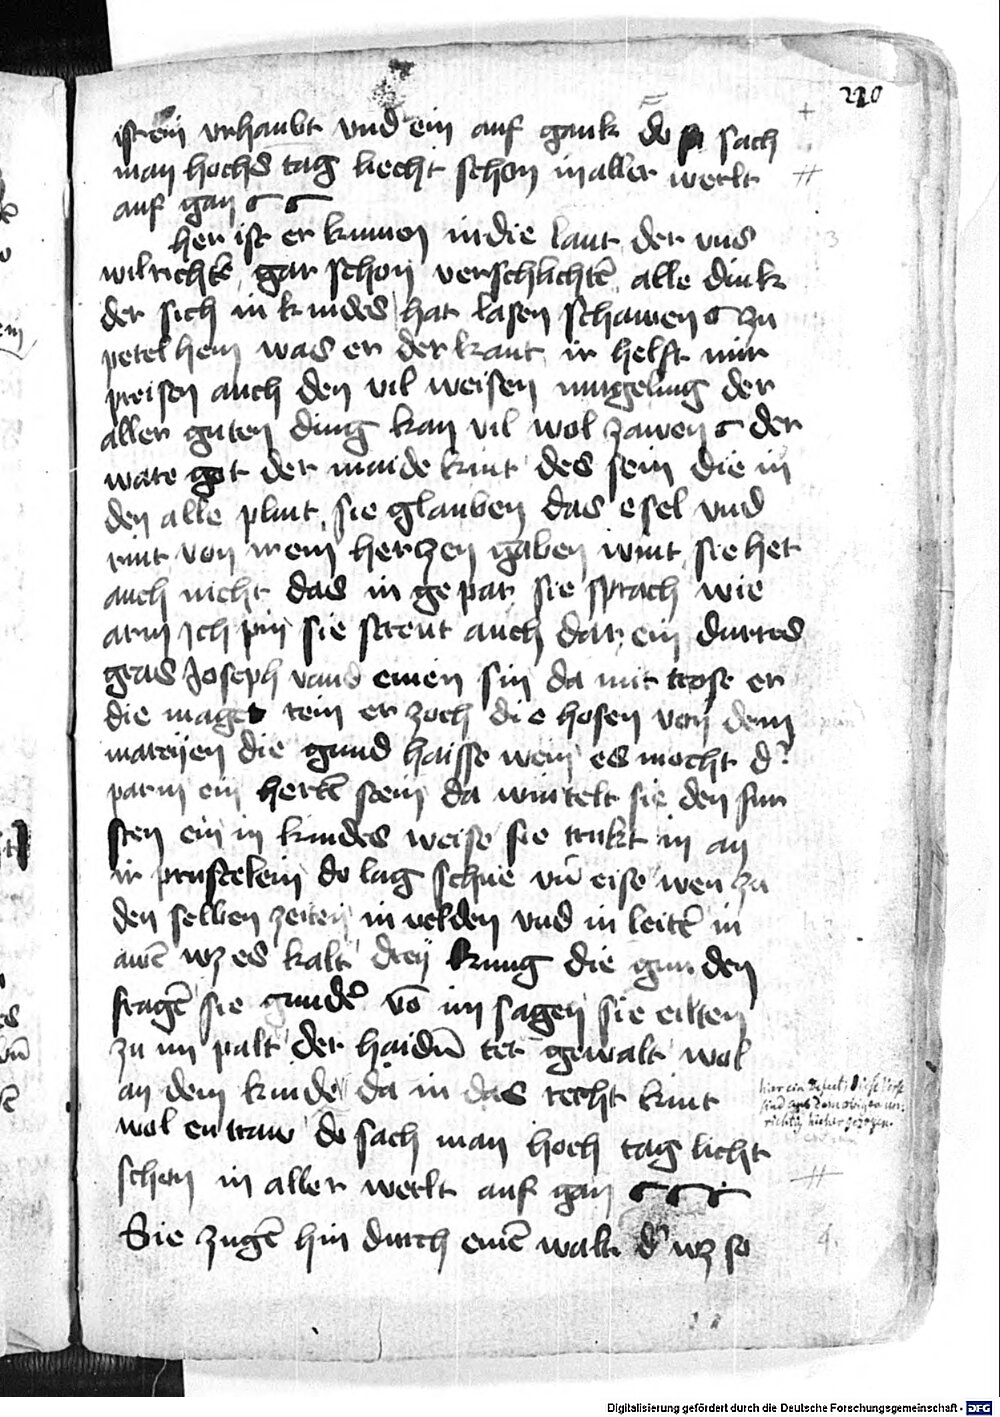 220
ist ein vrhaubt vnd ein auf gank do sach
man hochs tag liecht schon in aller werlt
auf gan
her ist er kumen in die lant der vns
wil richtē gar schon verschlichtē alle dink
der sich in kindes hat lasen schawen zu
petelhem was er der kant ir helft mir
preisen auch den vil weisen iungeling der
aller guten ding kan vil wol zawen der
ware got der maide kint des sein die in
den alle plint sie glauben das esel vnd
rint von irem herczen gaben wint sie het
auch nicht das in ge par sie sprach wie
arm ich pin sie streut auch dar ein durres
gras Joseph vand einen sin da mit trost er
die maget rein er zoch die hosen von dem
mareijen die gund haisse wein es mocht d'
parm ein hertē stein da wintelt sie den fur
sten ein in kindes weise sie trukt in an
ir prustelein do lag schne vn̄ eise wen zu
den selben zeiten in velden vnd in leitē in
awē wz es kalt dreij kung die gun den
fragē sie gundē vō im sagen sie eilten
zu im palt der haidn̄ ter gewalt wol
an dem kinde da in das recht kint
wol en traw do sach man hoch tag licht
schon in aller werlt auf gan
Sie zugē hin durch einē walt d' wz so
hier ein Defect: Diese Verse
sind aus dem obigen un-
richtig hieher gezogen.
Digitalisierung gefördert durch die Deutsche Forschungsgemeinschaft - DFG